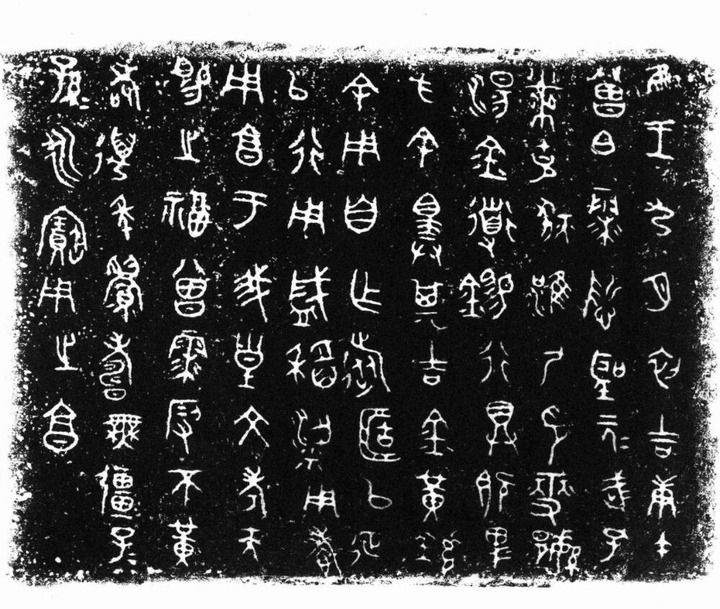 隹王九月初吉庚午
曾白霥悊聖元武孔
黹克狄淮尸印燮繁
湯金道錫行具既卑
方余擇其吉金黃鑪
余用自乍旅𠤳以征
以行用盛稻粱用孝
用享于我皇文考天
賜之福曾霥叚不黃
耇邁年眉壽無疆子
孫永寶用之享